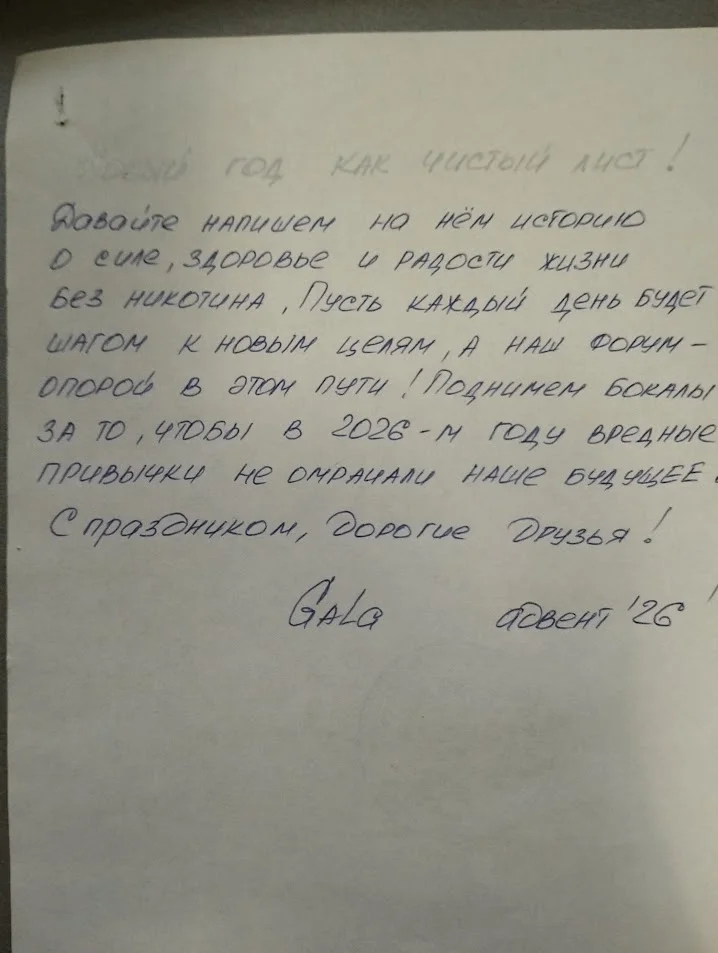 Новый год как чистый лист!
Давайте напишем на нём историю
о силе, здоровье и радости жизни
без никотина, Пусть каждый день будет
шагом к новым целям, а наш форум –
опорой в этом пути! Поднимем бокалы
за то, чтобы в 2026-м году вредные
привычки не омрачали наше будущее.
С праздником, дорогие друзья!
GALa адвент '26'